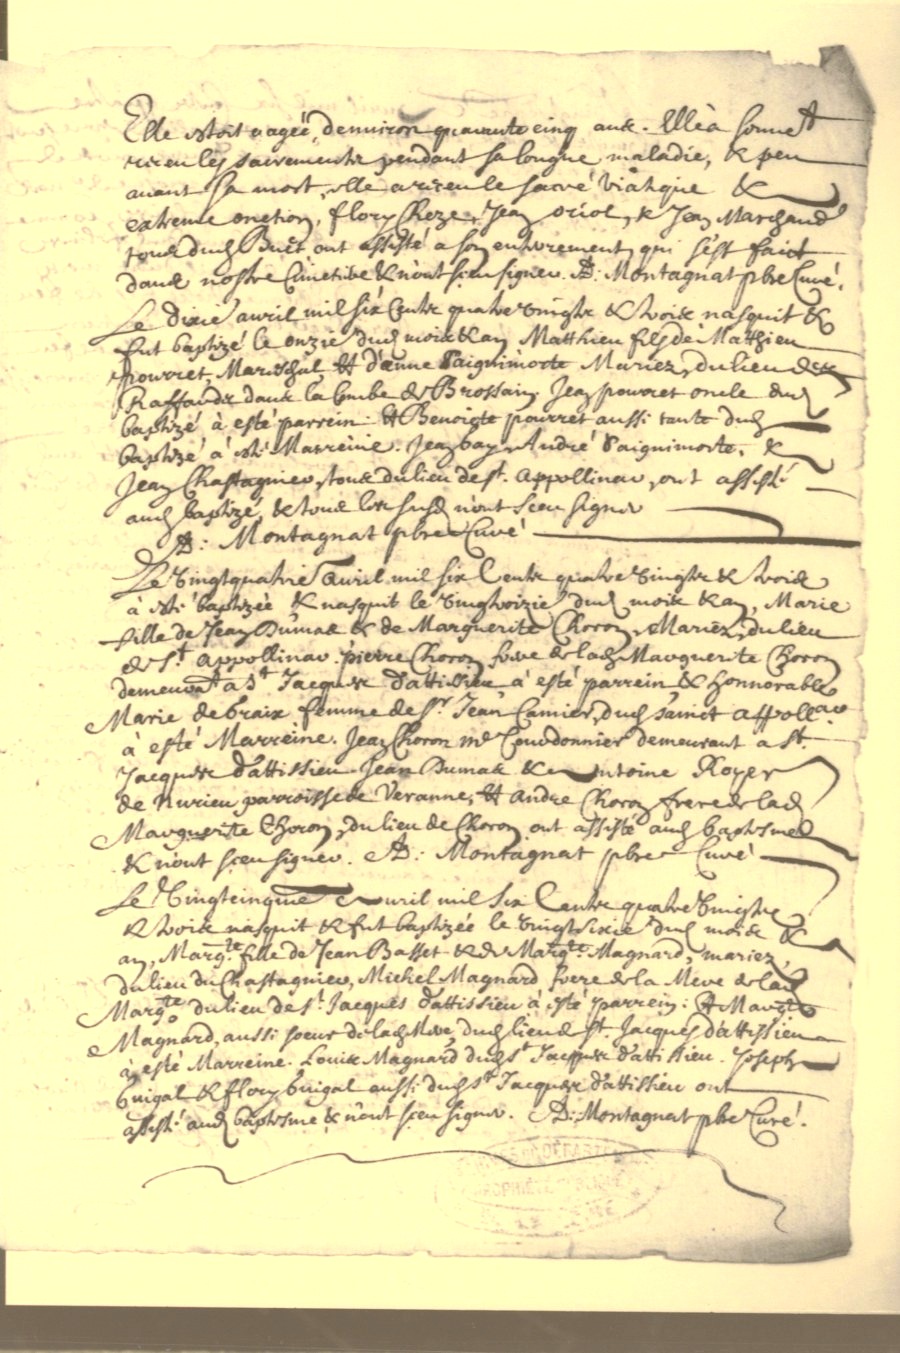 Elle estoit aagée denviron quarante cinq ans. Elle a souvent
receu les sacrements pendant sa longue maladie, & peu
avant sa mort elle a receu le sacré viatique &
extreme onction, flory Cheze, Jean oriol, & Jean Marchand
tous dud. Buët ont assisté a son enterrement, qui s'est faict
dans nostre Cimetiere & n'ont sceu signer. D: Montagnat pbre Curé.
Le dixie avril mil six Cents quatre vingts & trois nasquit &
fut baptizé le onzie dud. mois & an Matthieu fils de Matthieu
pourret, Mareschal, et d'anne Paignimorte Mariez, du lieu des
Raffauds dans la Combe de Brossain, Jean pourret oncle dud.
baptizé à esté parrein et Benoicte pourret aussi tante dud.
baptizé à esté Marreine. Jean bay, André Paignimorte, &
Jean Chastagnier, tous du lieu de st. appollinar, ont assisté
aud. baptizé, & tous les susd. n'ont sceu signer
D: Montagnat pbre Curé
Le vingtquatrie Avril mil six Cents quatre vingts & trois
à esté baptizée & nasquit le vingtroizie dud. mois & an, Marie
fille de Jean Dumas & de Marguerite Choron, Mariez, du lieu
de St. appollinar. pierre Choron frere de lad. Marguerite Choron
demeurat. a St. Jacques d'attissieu à esté parrein & honnorable
Marie de fraix femme de Sr. Jean Camier, dud. sainct appollar.
à esté Marreine. Jean Choron me. Courdonnier demeurant a St.
Jacques d'attissieu Jean Dumas & antoine Royer
de Nurieu parroisse de Veranne, et andre Choron frere de lad.
Marguerite Choron, du lieu de Choron ont assisté aud. baptesme
& n'ont sceu signer. D: Montagnat pbre Curé
Le vingtcinqme Avril mil six Cents quatre vingts
& trois nasquit & fut baptizée le vingtsixie dud. mois &
an, Margte. fille de Jean Basset & de Margte. Magnard, mariez,
du lieu du Chastagnier, Michel Magnard frere de la Mere de lad.
Margte. du lieu de St. Jacques d'attissieu à esté parrein: et Margte
Magnard, aussi soeur de lad. Mere, dud. lieu de St. Jacques d'attissieu
à esté Marreine. Louis Magnard dud. St. Jacques d'attissieu. Joseph
Guigal & flory Guigal aussi dud. St. Jacques d'attissieu ont
assisté aud. baptesme & n'ont sceu signer. D: Montagnat pbre Curé.